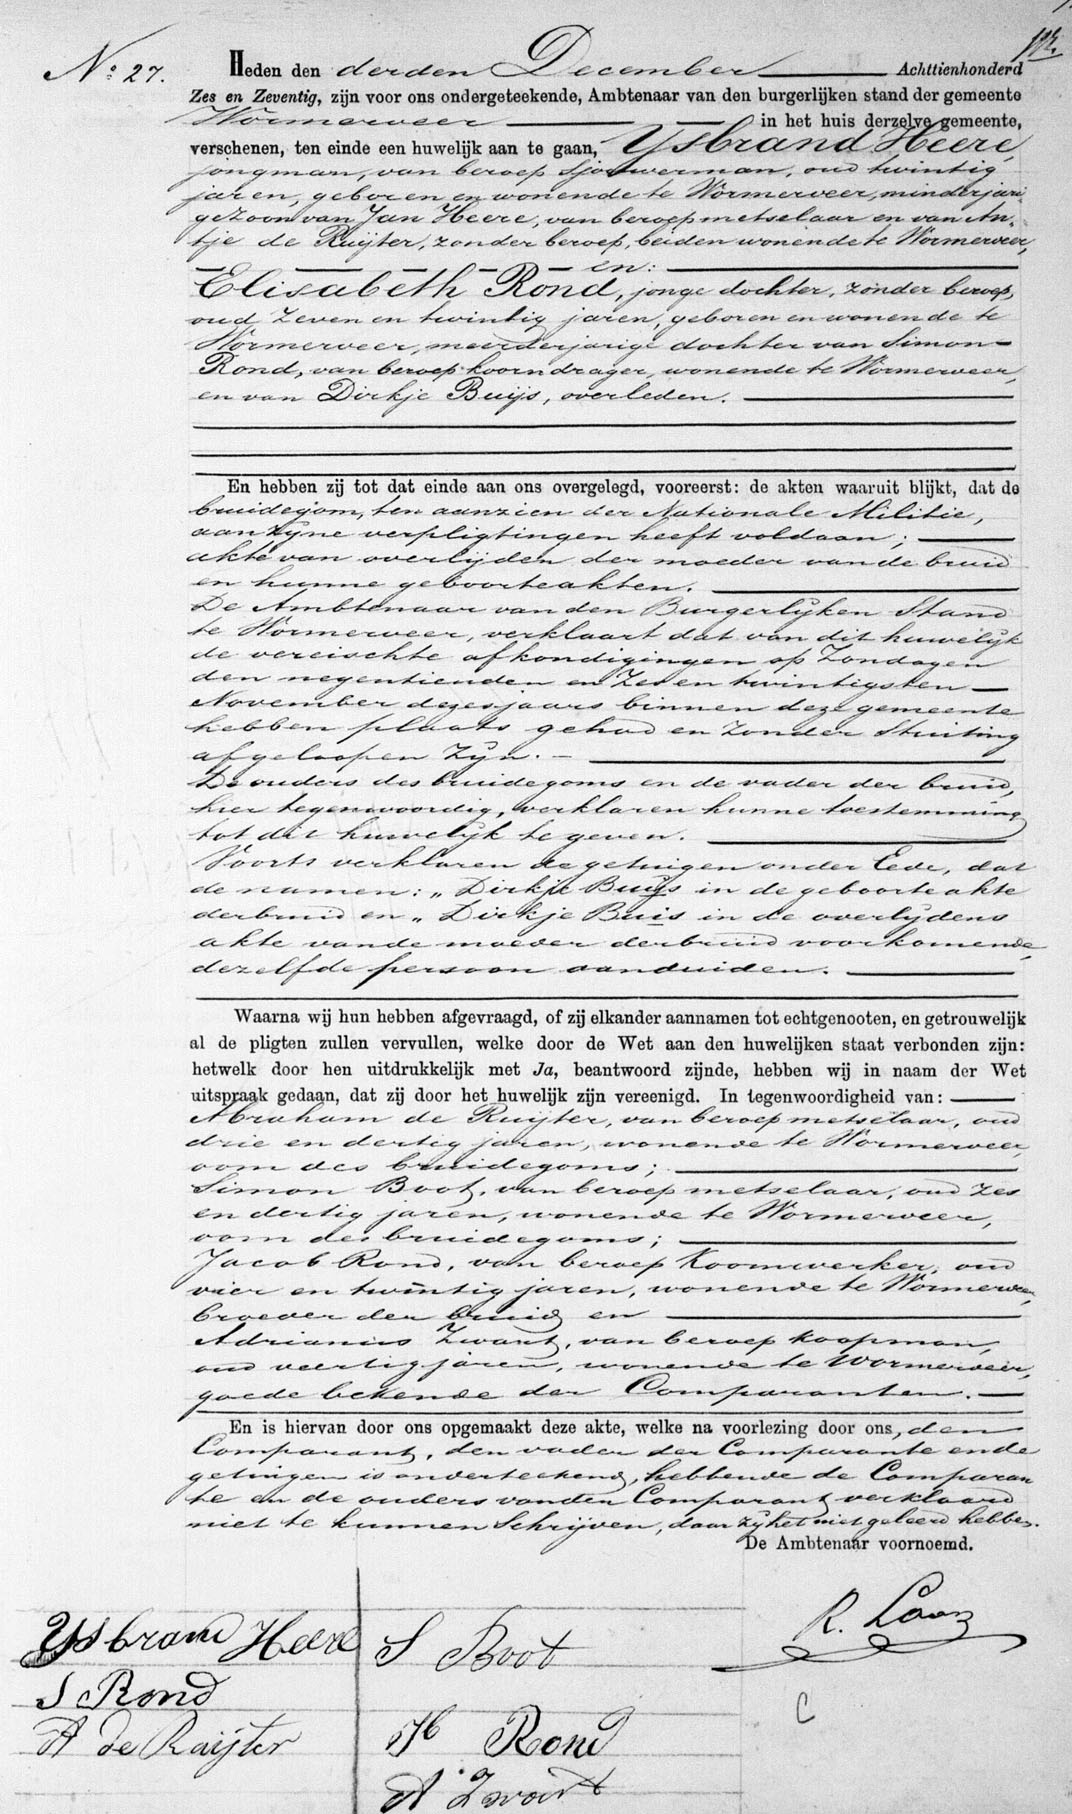 No. 27.
Heden den derden December Achttienhonderd
Zes en Zeventig, zijn voor ons ondergeteekende, Ambtenaar van den burgerlijken stand der gemeente
Wormerveer in het huis derzelve gemeente,
verschenen, ten einde een huwelijk aan te gaan, IJsbrand Heere,
jongman, van beroep sjouwerman, oud twintig
jaren, geboren en wonende te Wormerveer, minderjari-
ge zoon van Jan Heere, van beroep metselaar en van An-
tje de Ruijter, zonder beroep, beiden wonende te Wormerveer,
en:
Elisabeth Rond, jonge dochter, zonder beroep,
oud zeven en twintig jaren, geboren en wonende te
Wormerveer, meerderjarige dochter van Simon
Rond, van beroep koorndrager, wonende te Wormerveer,
en van Dirkje Buijs, overleden.
En hebben zij tot dat einde aan ons overgelegd, vooreerst: de akten waaruit blijkt, dat de
bruidegom, ten aanzien der Nationale Militie,
aan zijne verpligtingen heeft voldaan;
akte van overlijden der moeder van de bruid
en hunne geboorteakten.
De Ambtenaar van den Burgerlijken Stand
te Wormerveer, verklaart dat van dit huwelijk
de vereischte afkondigingen op Zondagen
den negentienden en Zes en twintigsten
November dezes jaars binnen deze gemeente
hebben plaats gehad en zonder Stuiting
afgeloopen zijn.
De ouders des bruidegoms en de vader der bruid,
hier tegenwoordig, verklaren hunne toestemming
tot dit huwelijk te geven.
Voorts verklaren de getuigen onder Eede, dat
de namen: „Dirkje Buijs in de geboorteakte
der bruid en „Dirkje Buis in de overlijdens
akte van de moeder der bruid voorkomende,
dezelfde persoon aanduiden.
Waarna wij hun hebben afgevraagd, of zij elkander aannamen tot echtgenooten, en getrouwelijk
al de pligten zullen vervullen, welke door de Wet aan den huwelijken staat verbonden zijn:
hetwelk door hen uitdrukkelijk met Ja, beantwoord zijnde, hebben wij in naam der Wet
uitspraak gedaan, dat zij door het huwelijk zijn vereenigd. In tegenwoordigheid van:
Abraham de Ruijter, van beroep metselaar, oud
drie en dertig jaren, wonende te Wormerveer,
oom des bruidegoms;
Simon Boot, van beroep metselaar, oud zes
en dertig jaren, wonende te Wormerveer,
oom des bruidegoms;
Jacob Rond, van beroep Koornwerker, oud
vier en twintig jaren, wonende te Wormerveer,
broeder der bruid en
Adrianus Zwart, van beroep koopman,
oud veertig jaren, wonende te Wormerveer,
goede bekende der Comparanten.
En is hiervan door ons opgemaakt deze akte, welke na voorlezing door ons, den
Comparant, den vader der Comparante en de
getuigen is onderteekend, hebbende de Comparan
te en de ouders van den Comparant verklaard
niet te kunnen Schrijven, daar zij het niet geleerd hebben.
De Ambtenaar voornoemd.
R. Laan
IJsbrand Heere
S Boot
S Rond
A de Ruijter
Jb Rond
A Zwart